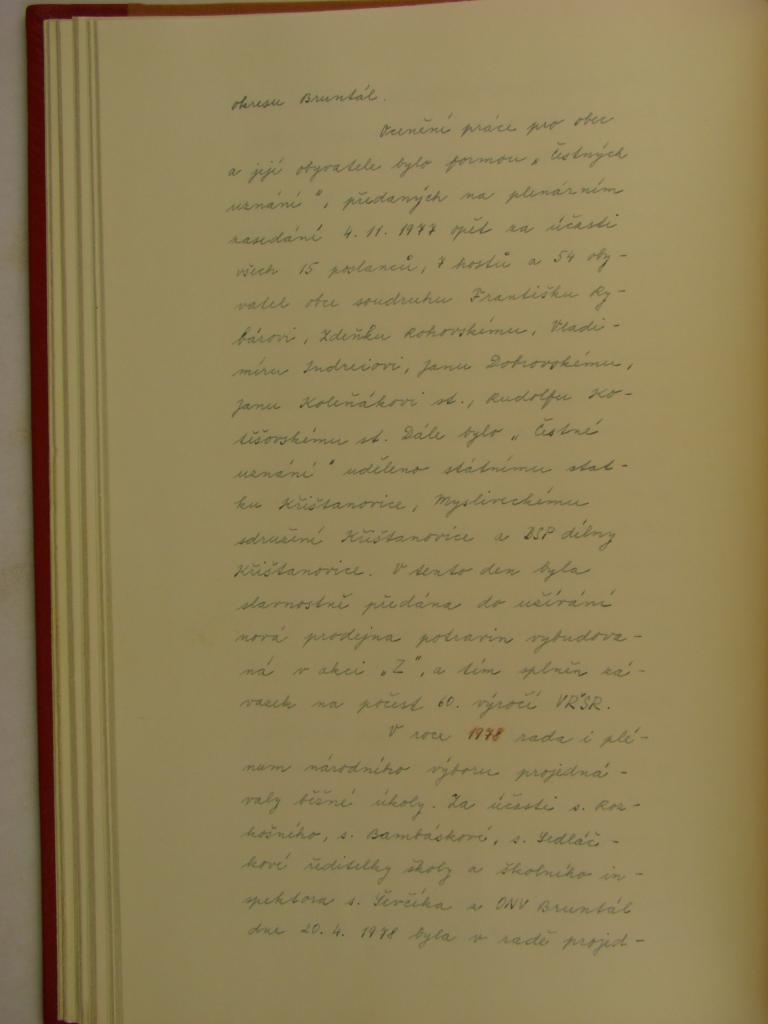 okresu Bruntál.
Ocenění práce pro obec
a její obyvatele bylo formou „čestných
uznání“, předaných na plenárním
zasedání 4. 11. 1977 opět za účasti
všech 15 poslanců, 7 hostů a 54 oby-
vatel obce soudruhu Františku Ry-
bárovi, Zdeňku Rohovskému, Vladi-
míru Indreiovi, Janu Dobrovskému,
Janu Koleňákovi st., Rudolfu Ko-
těšovskému st. Dále bylo „čestné
uznání“ uděleno státnímu stat-
ku Křištanovice, Mysliveckému
sdružení Křištanovice a DSP dílny
Křištanovice. V tento den byla
slavnostně předána do užívání
nová prodejna potravin vybudova-
ná v akci „Z“, a tím splněn zá-
vazek na počest 60. výročí VŘSR.
V roce 1978 rada i plé-
num národního výboru projedná-
valy běžné úkoly. Za účasti s. Roz-
košného, s. Bambáskové, s. Sedláč-
kové ředitelky školy a školního in-
spektora s. Ševčíka z ONV Bruntál
dne 20. 4. 1978 byla v radě projed-